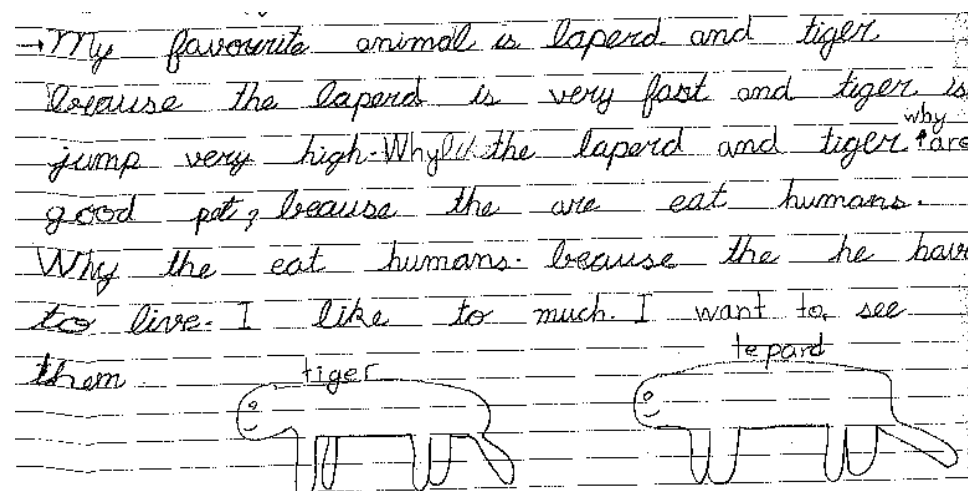 →My favourite animal is laperd and tiger
beause the laperd is very fast and tiger is
jump very high. Why the laperd and tiger why are
good pet, beause the are eat humans.
Why the eat humans. beause the he have
to live. I like to much. I want to see
them
tiger
tepard